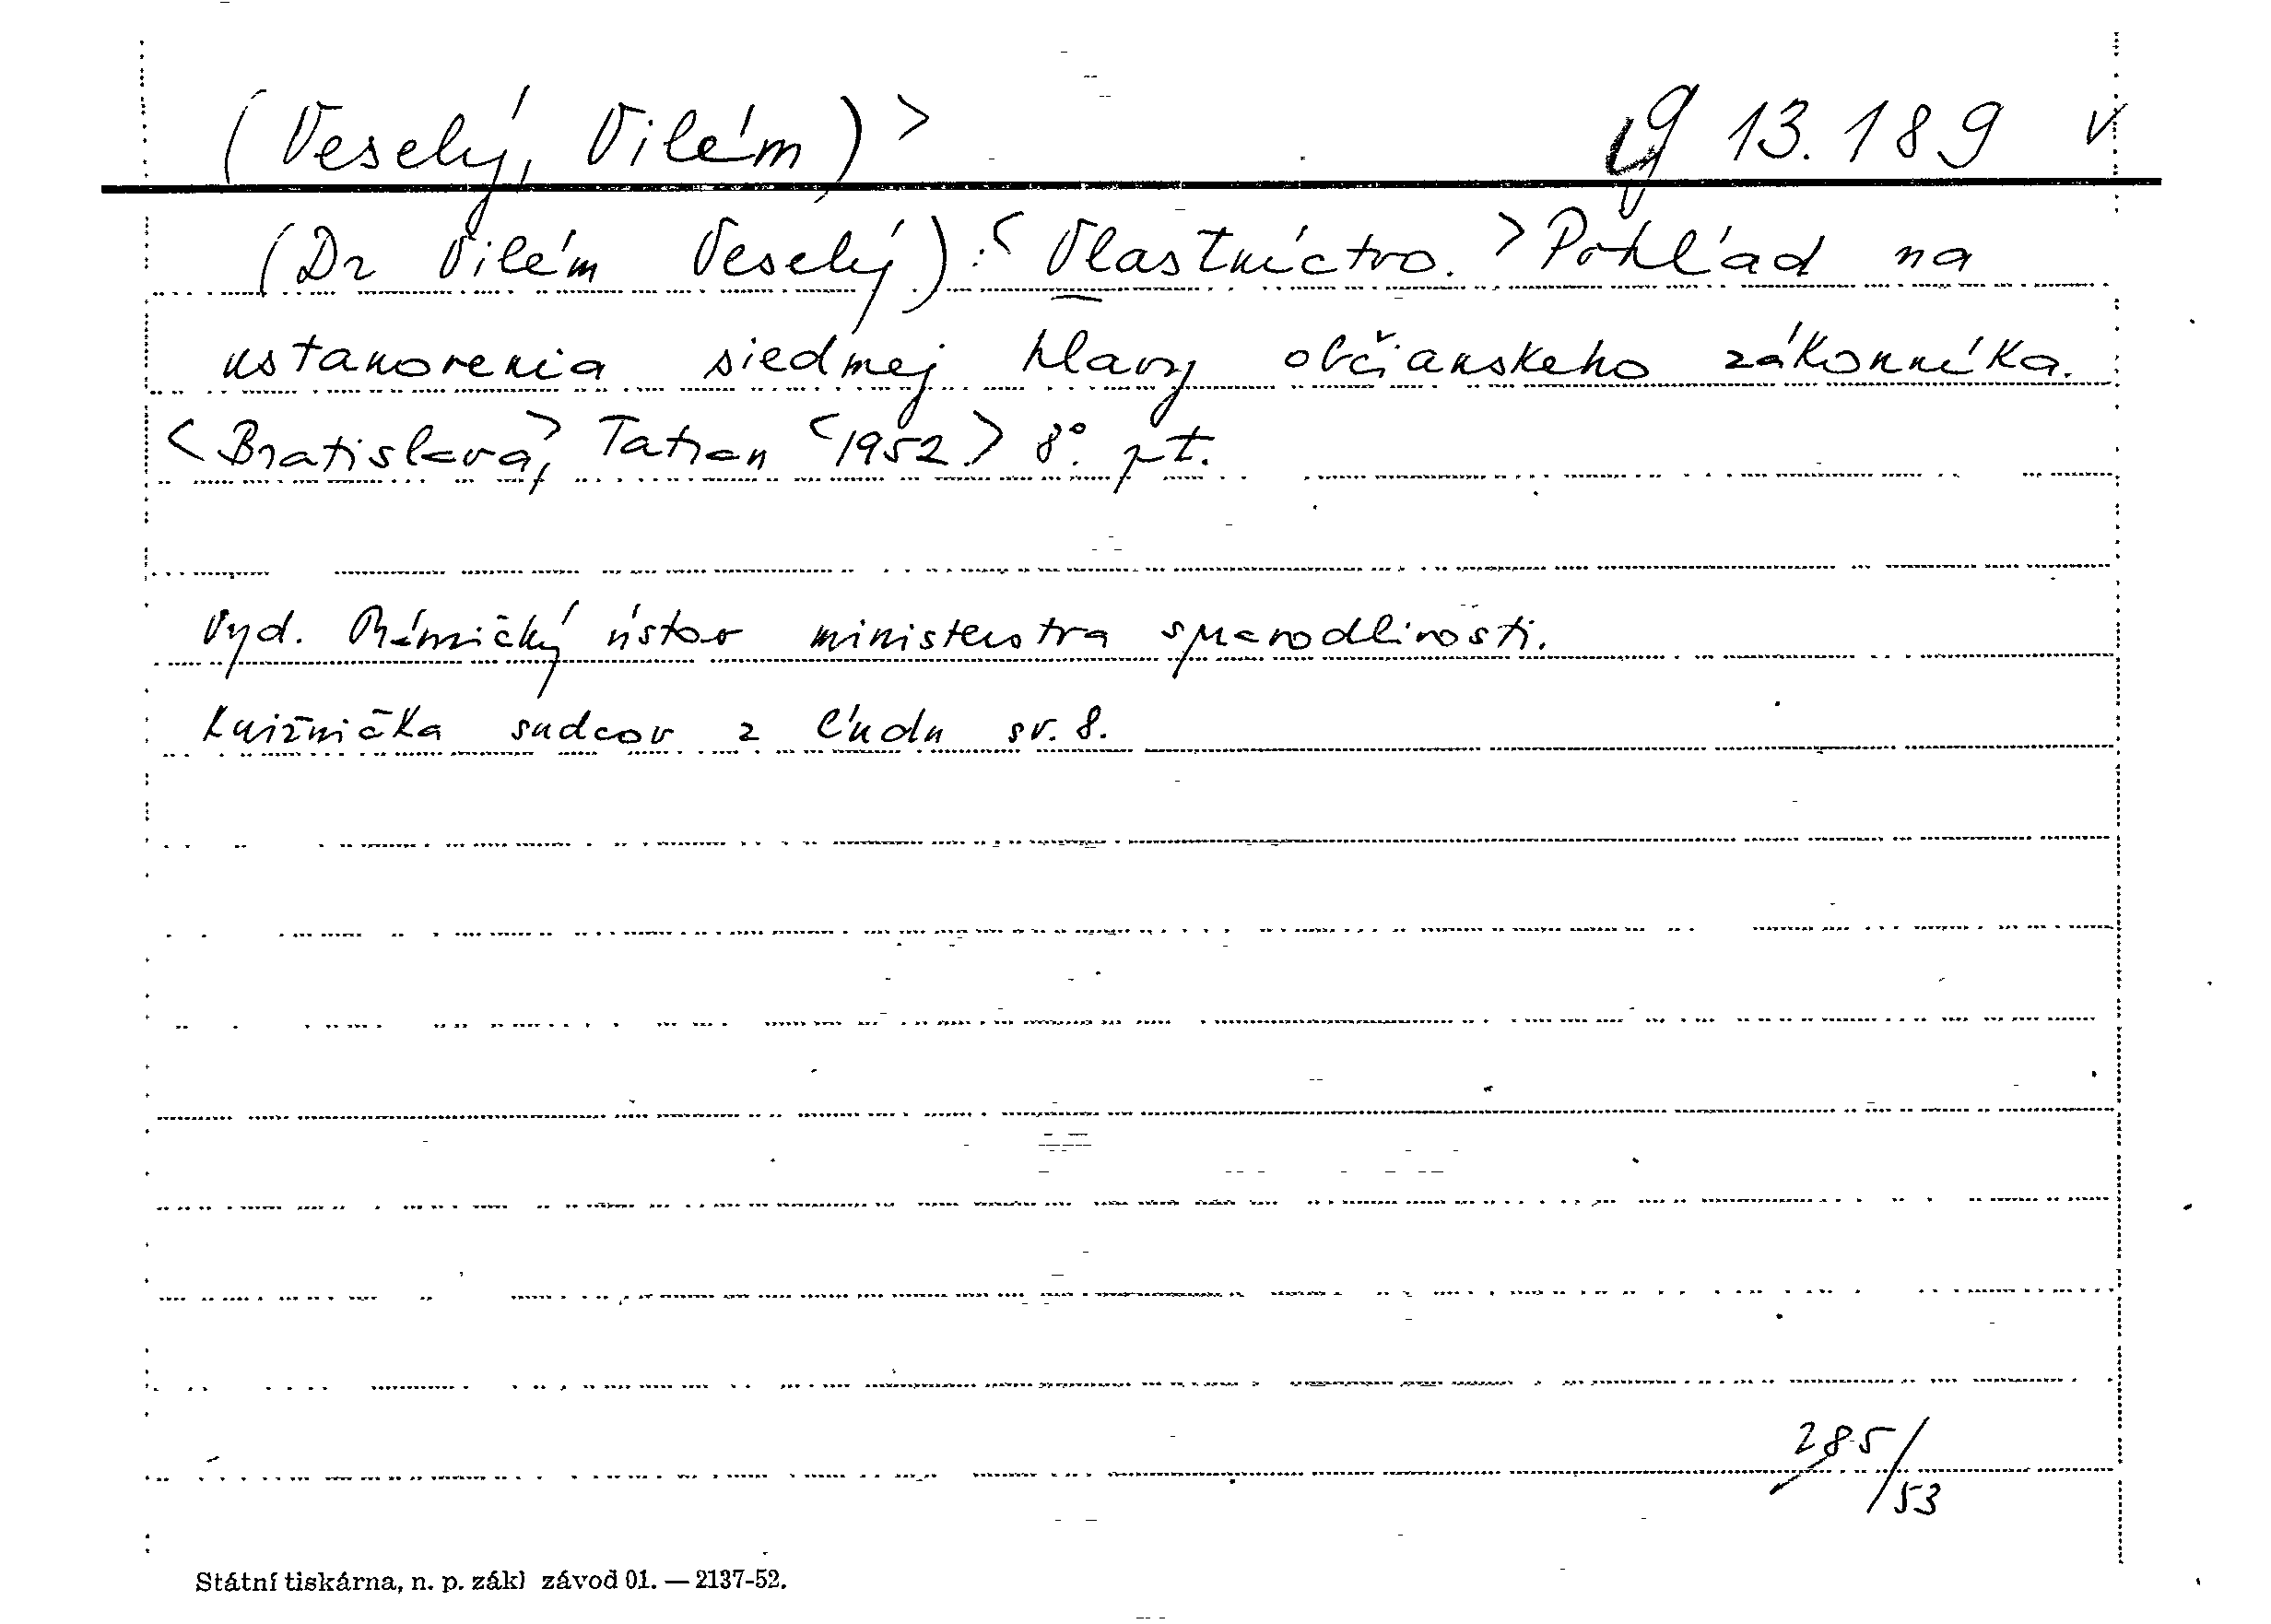 (Veselý, Vilém) > g 13.189 v
(Dr Vilém Veselý): < Vlastníctvo. > Pohľad na
ustanovenia siedmej hlavy občianskeho zákonníka.
< Bratislava, > Tatran < 1952. > 8°. pt.
Vyd. Právnický ústav ministerstva spravodlivosti.
Knižnička sudcov z ľudu sv. 8.
285/53
Státní tiskárna, n. p. zákl závod 01. — 2137-52.